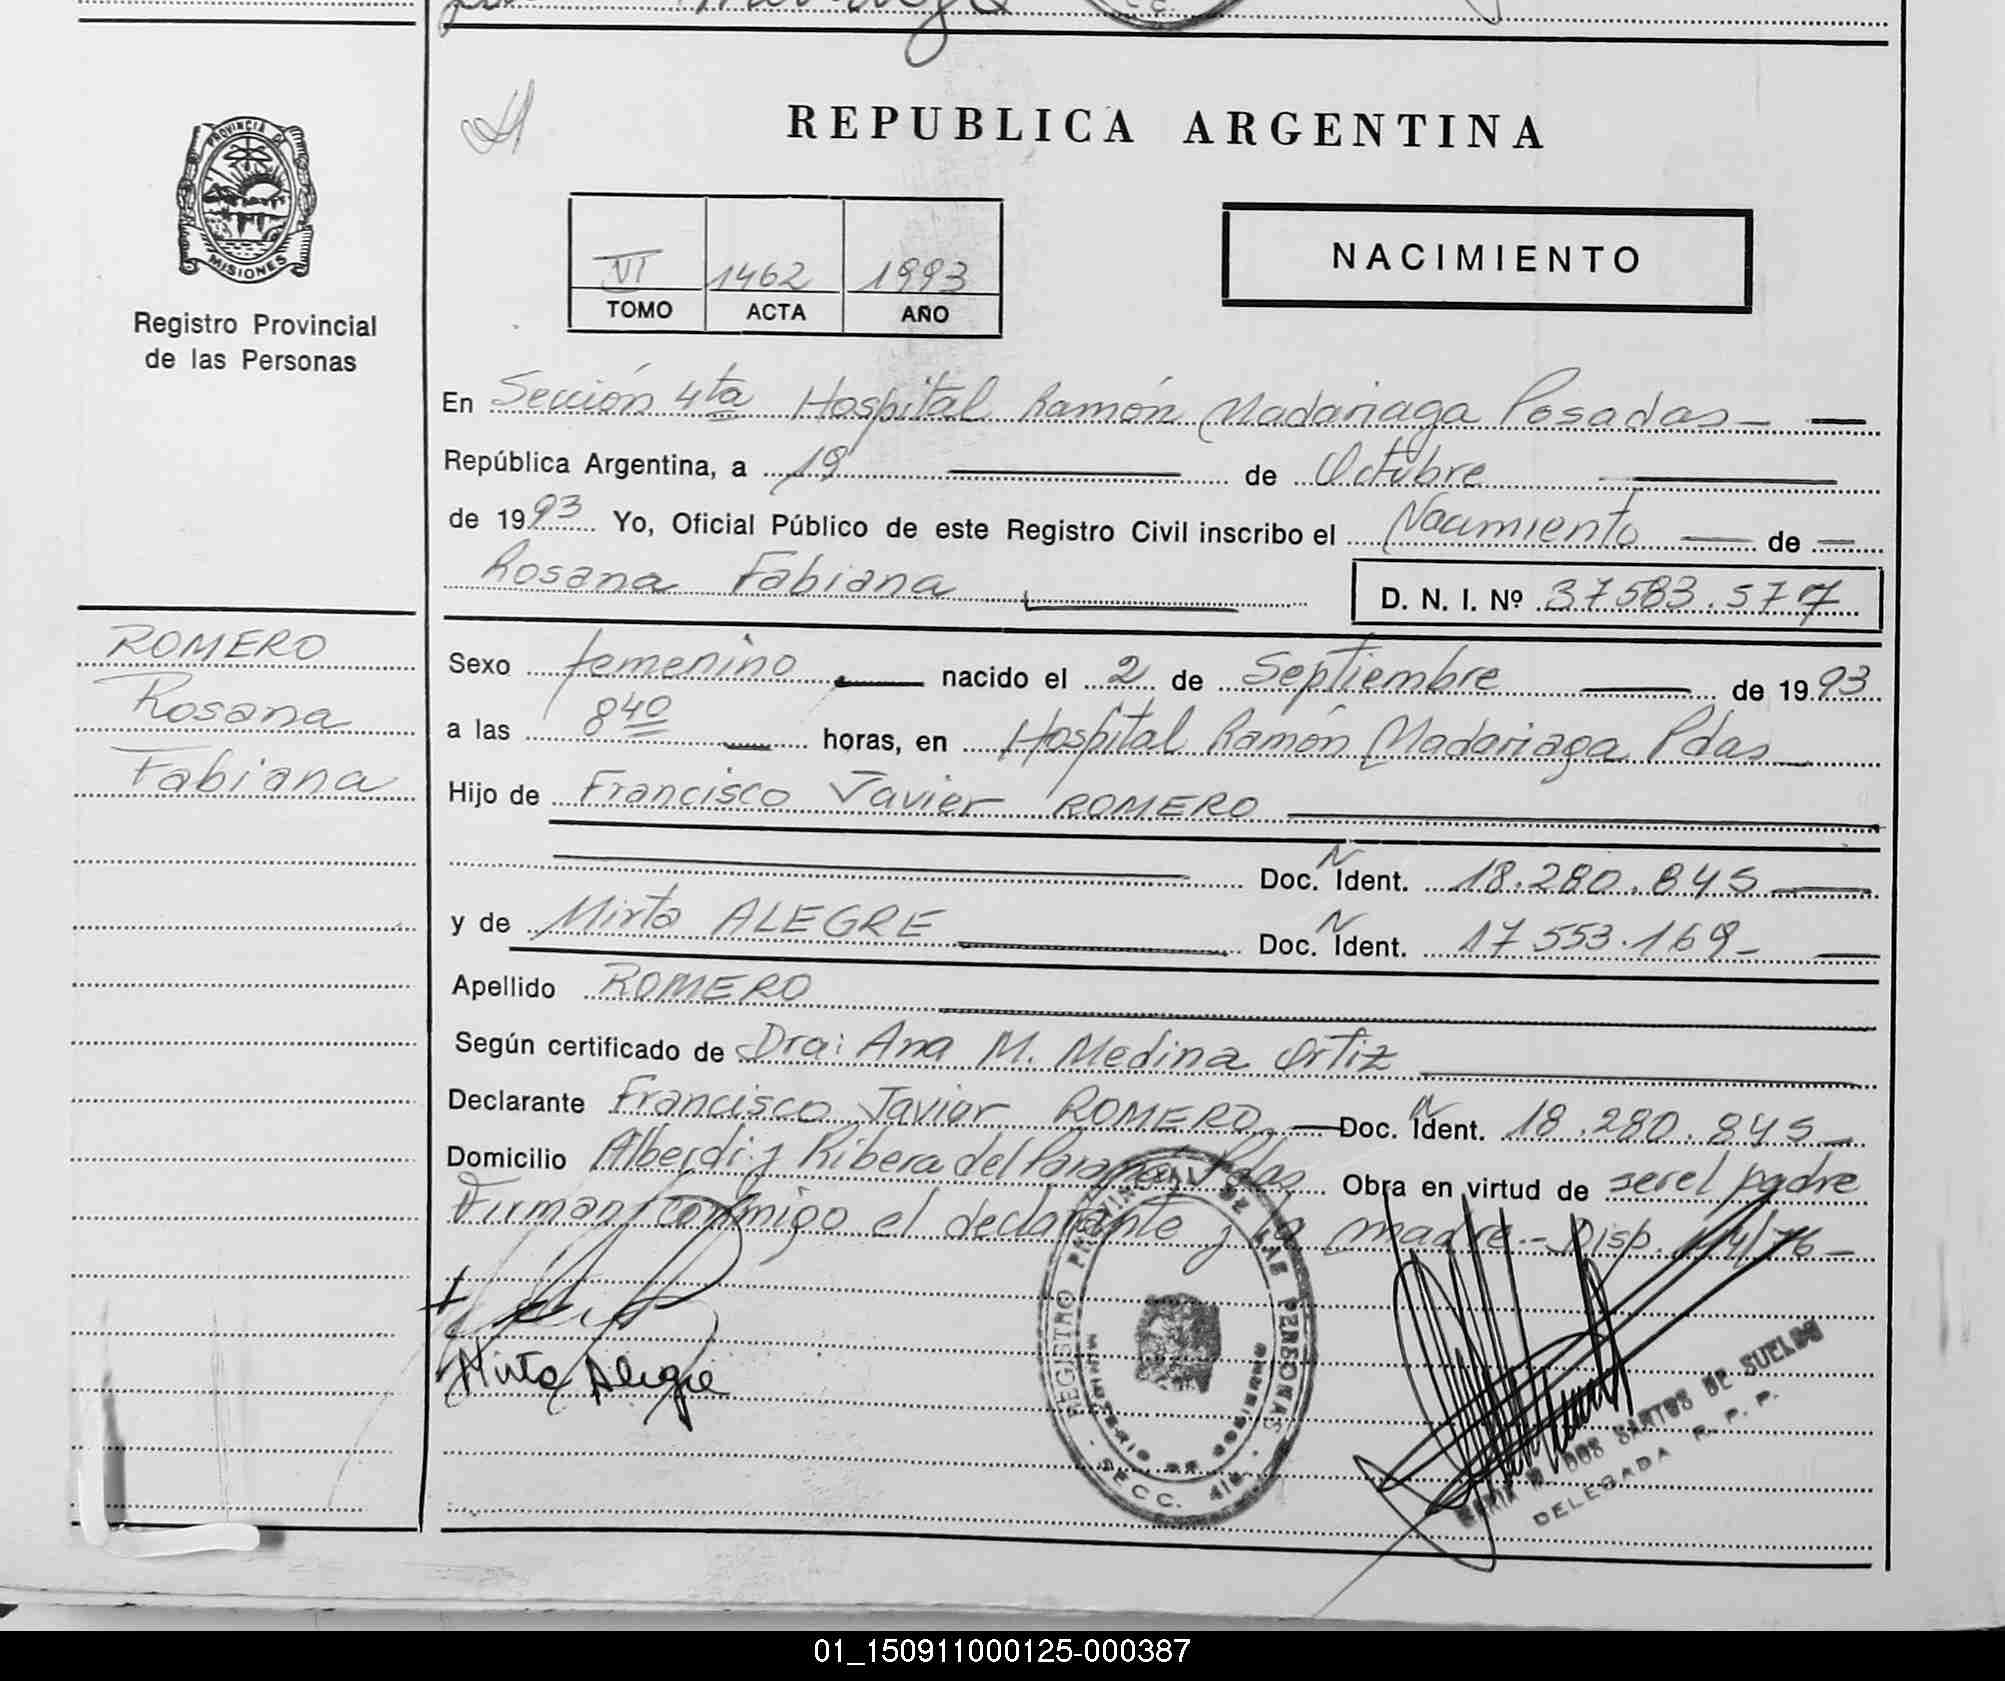 REPUBLICA ARGENTINA
PROVINCIA DE
MISIONES
Registro Provincial
de las Personas
VI 1462 1993
TOMO ACTA AÑO
NACIMIENTO
En Sección 4ta Hospital Ramón Madariaga Posadas
República Argentina, a 19 de Octubre
de 1993 Yo, Oficial Público de este Registro Civil inscribo el Nacimiento de
Rosana Fabiana D. N. I. Nº 37583.577
ROMERO
Rosana
Fabiana
Sexo femenino nacido el 2 de Septiembre de 1993
a las 8 40 horas, en Hospital Ramón Madariaga Pdas
Hijo de Francisco Javier ROMERO
Doc. N Ident. 18.280.845
y de Mirta ALEGRE Doc. N Ident. 17553.169
Apellido ROMERO
Según certificado de Dra: Ana M. Medina Ortiz
Declarante Francisco Javier ROMERO Doc. N Ident. 18.280.845
Domicilio Alberdi y Ribera del Paraná Pdas Obra en virtud de ser el padre
Firman conmigo el declarante y la madre.- Disp.
Mirta Alegre
REGISTRO PROVINCIAL DE LAS PERSONAS
MINISTERIO DE GOBIERNO
SECC. 4ta.
MARIA DOS SANTOS DE SUELDO
DELEGADA R. P. P.
01_150911000125-000387